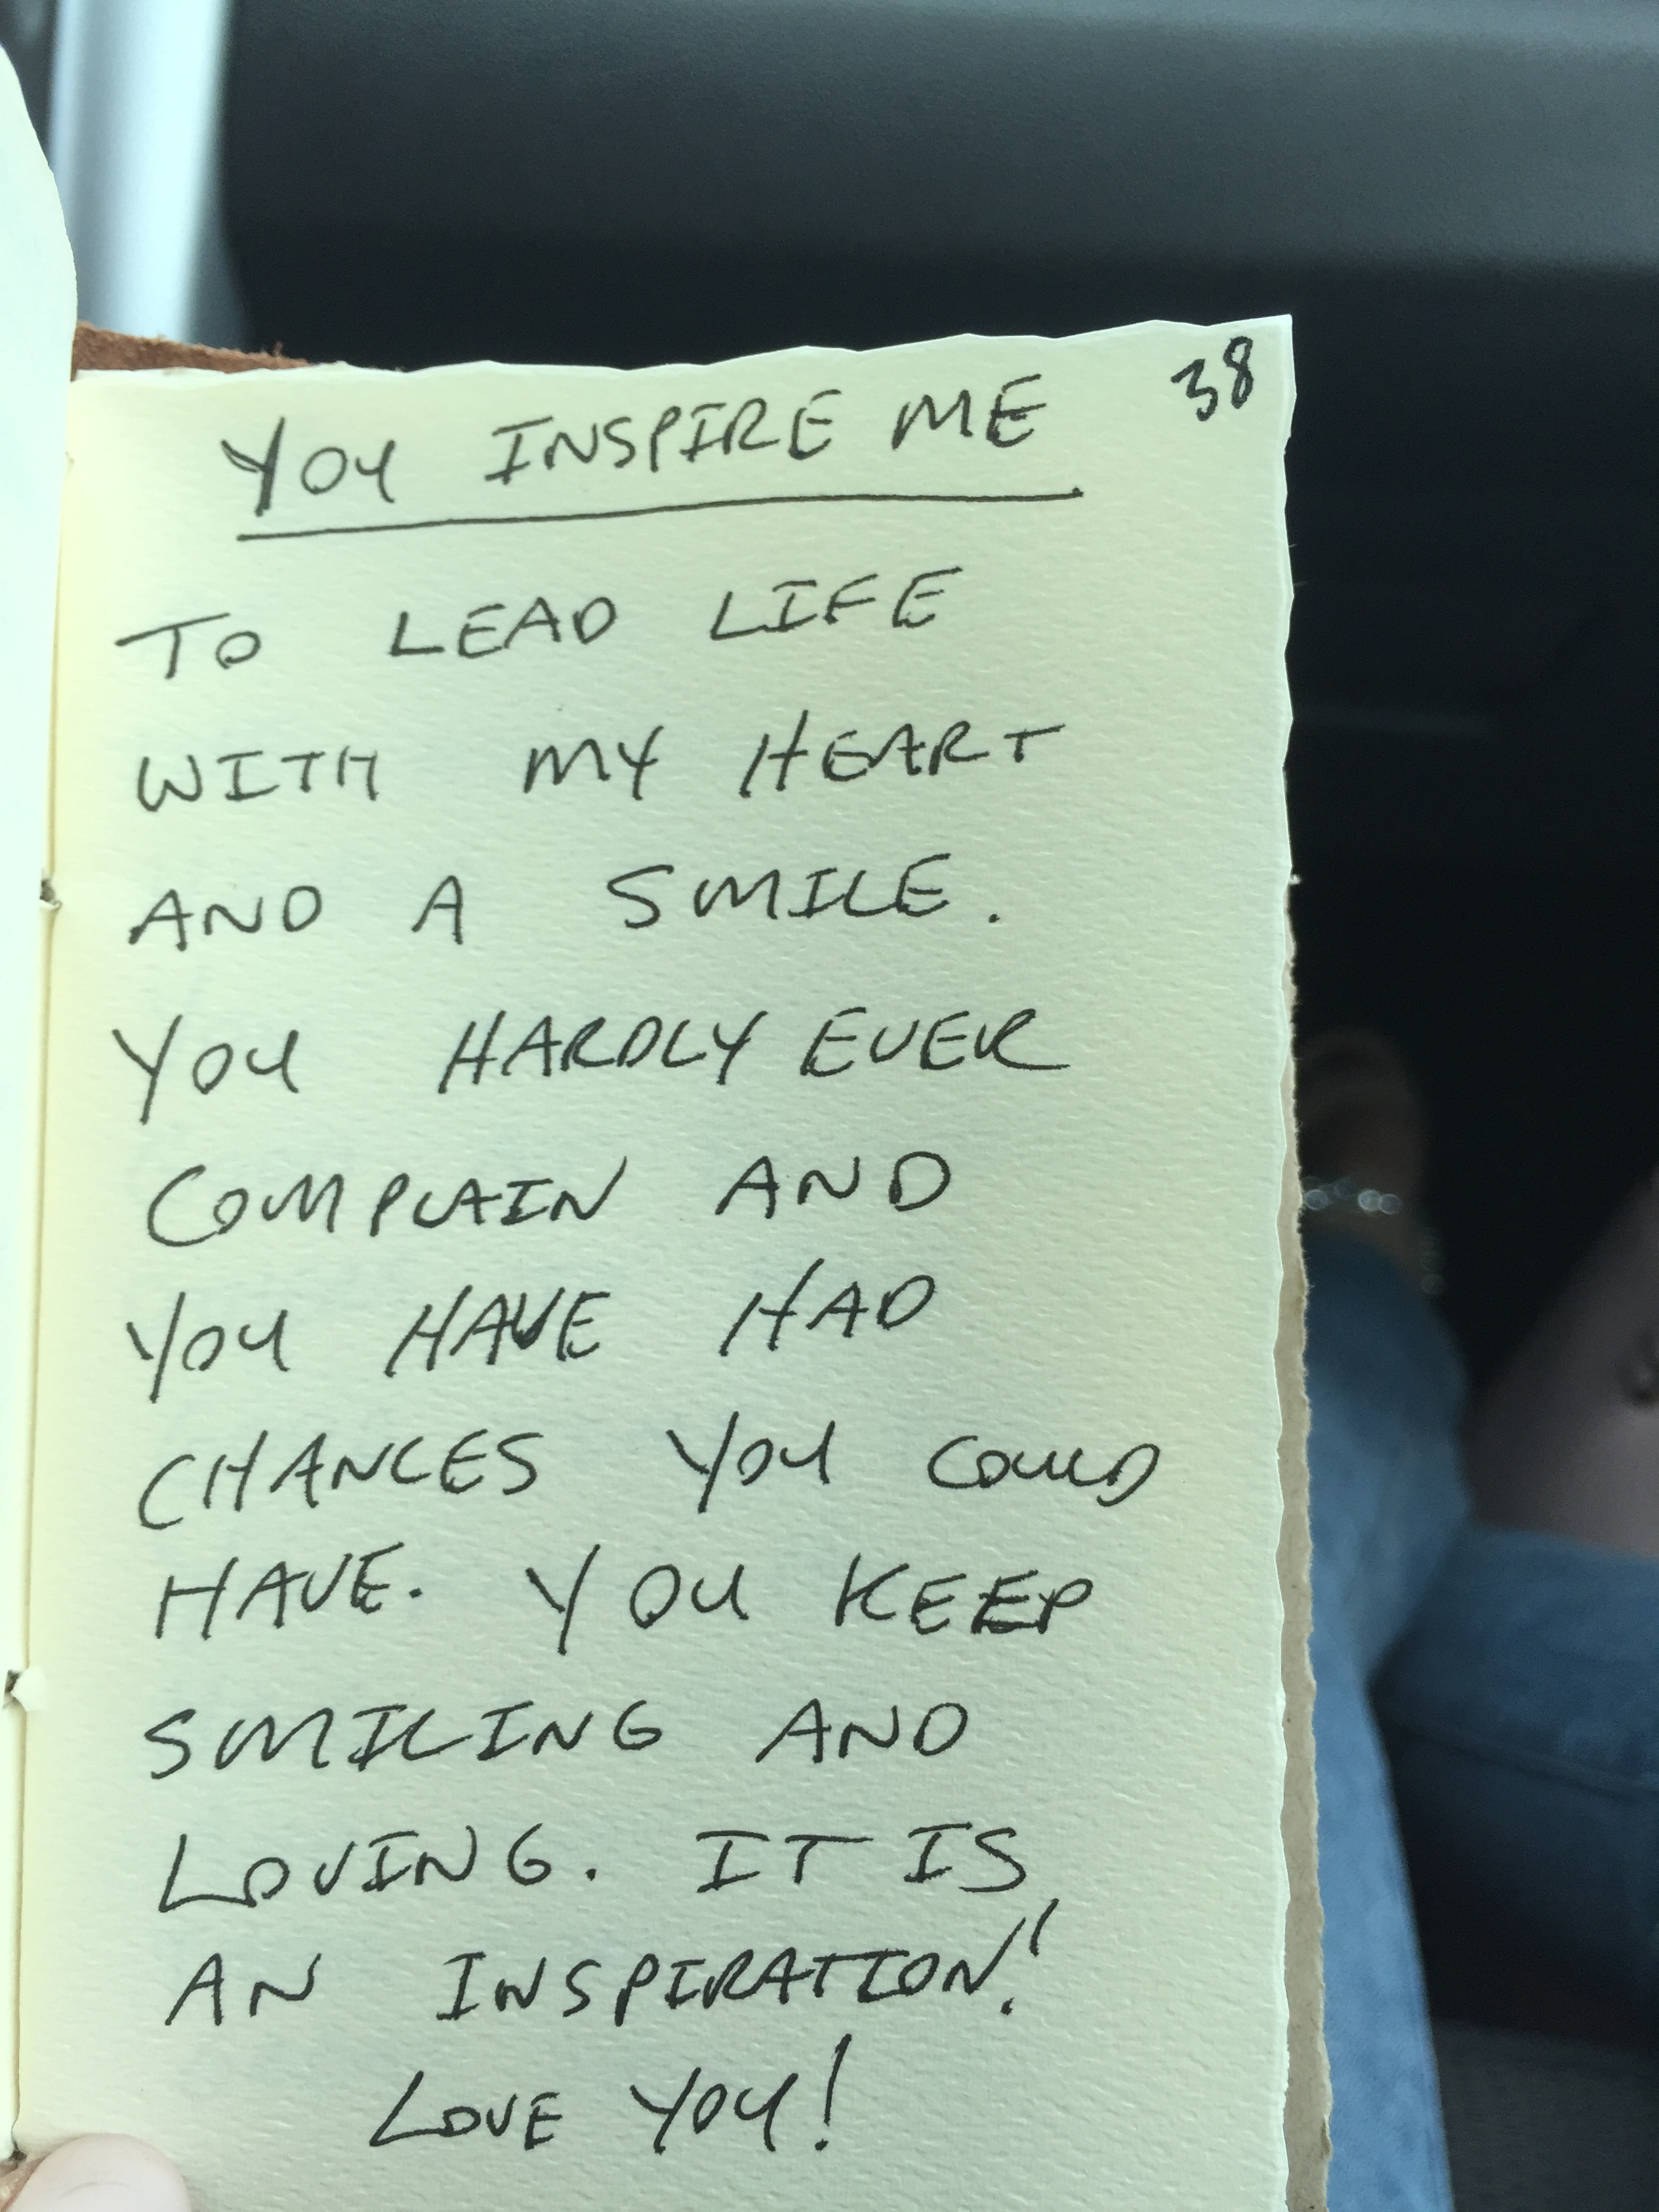 38
YOU INSPIRE ME
TO LEAD LIFE
WITH MY HEART
AND A SMILE.
YOU HARDLY EVER
COMPLAIN AND
YOU HAVE HAD
CHANCES YOU COULD
HAVE. YOU KEEP
SMILING AND
LOVING. IT IS
AN INSPIRATION!!
LOVE YOU!